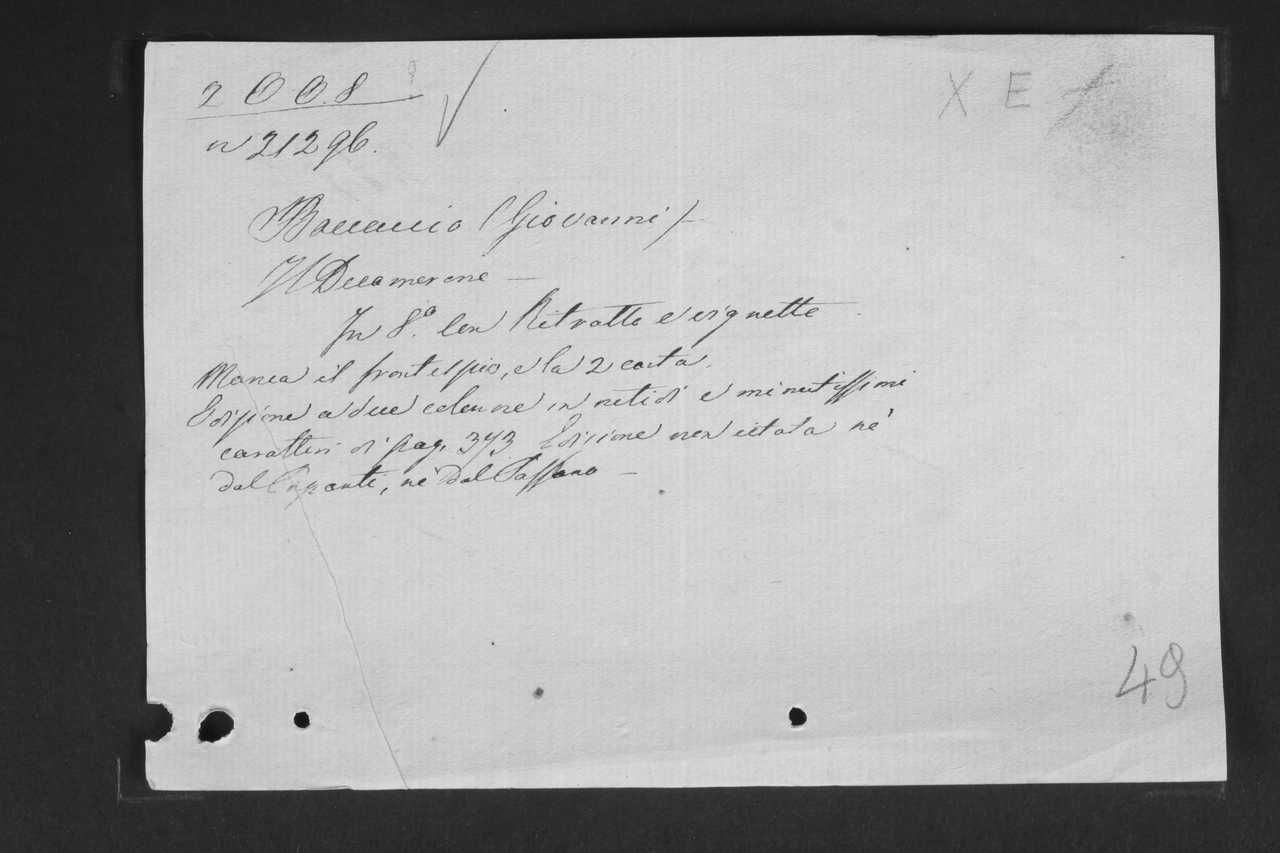 2008
n 21296.
X E
Boccaccio (Giovanni) —
Il Decamerone —
In 8.º Con Ritratto e vignette.
Manca il frontespizio, e la 2 carta.
Edizione a due colonne in nitidi e minutissimi
caratteri di pag. 373 Edizione non citata nè
dal , nè dal Passano —
49